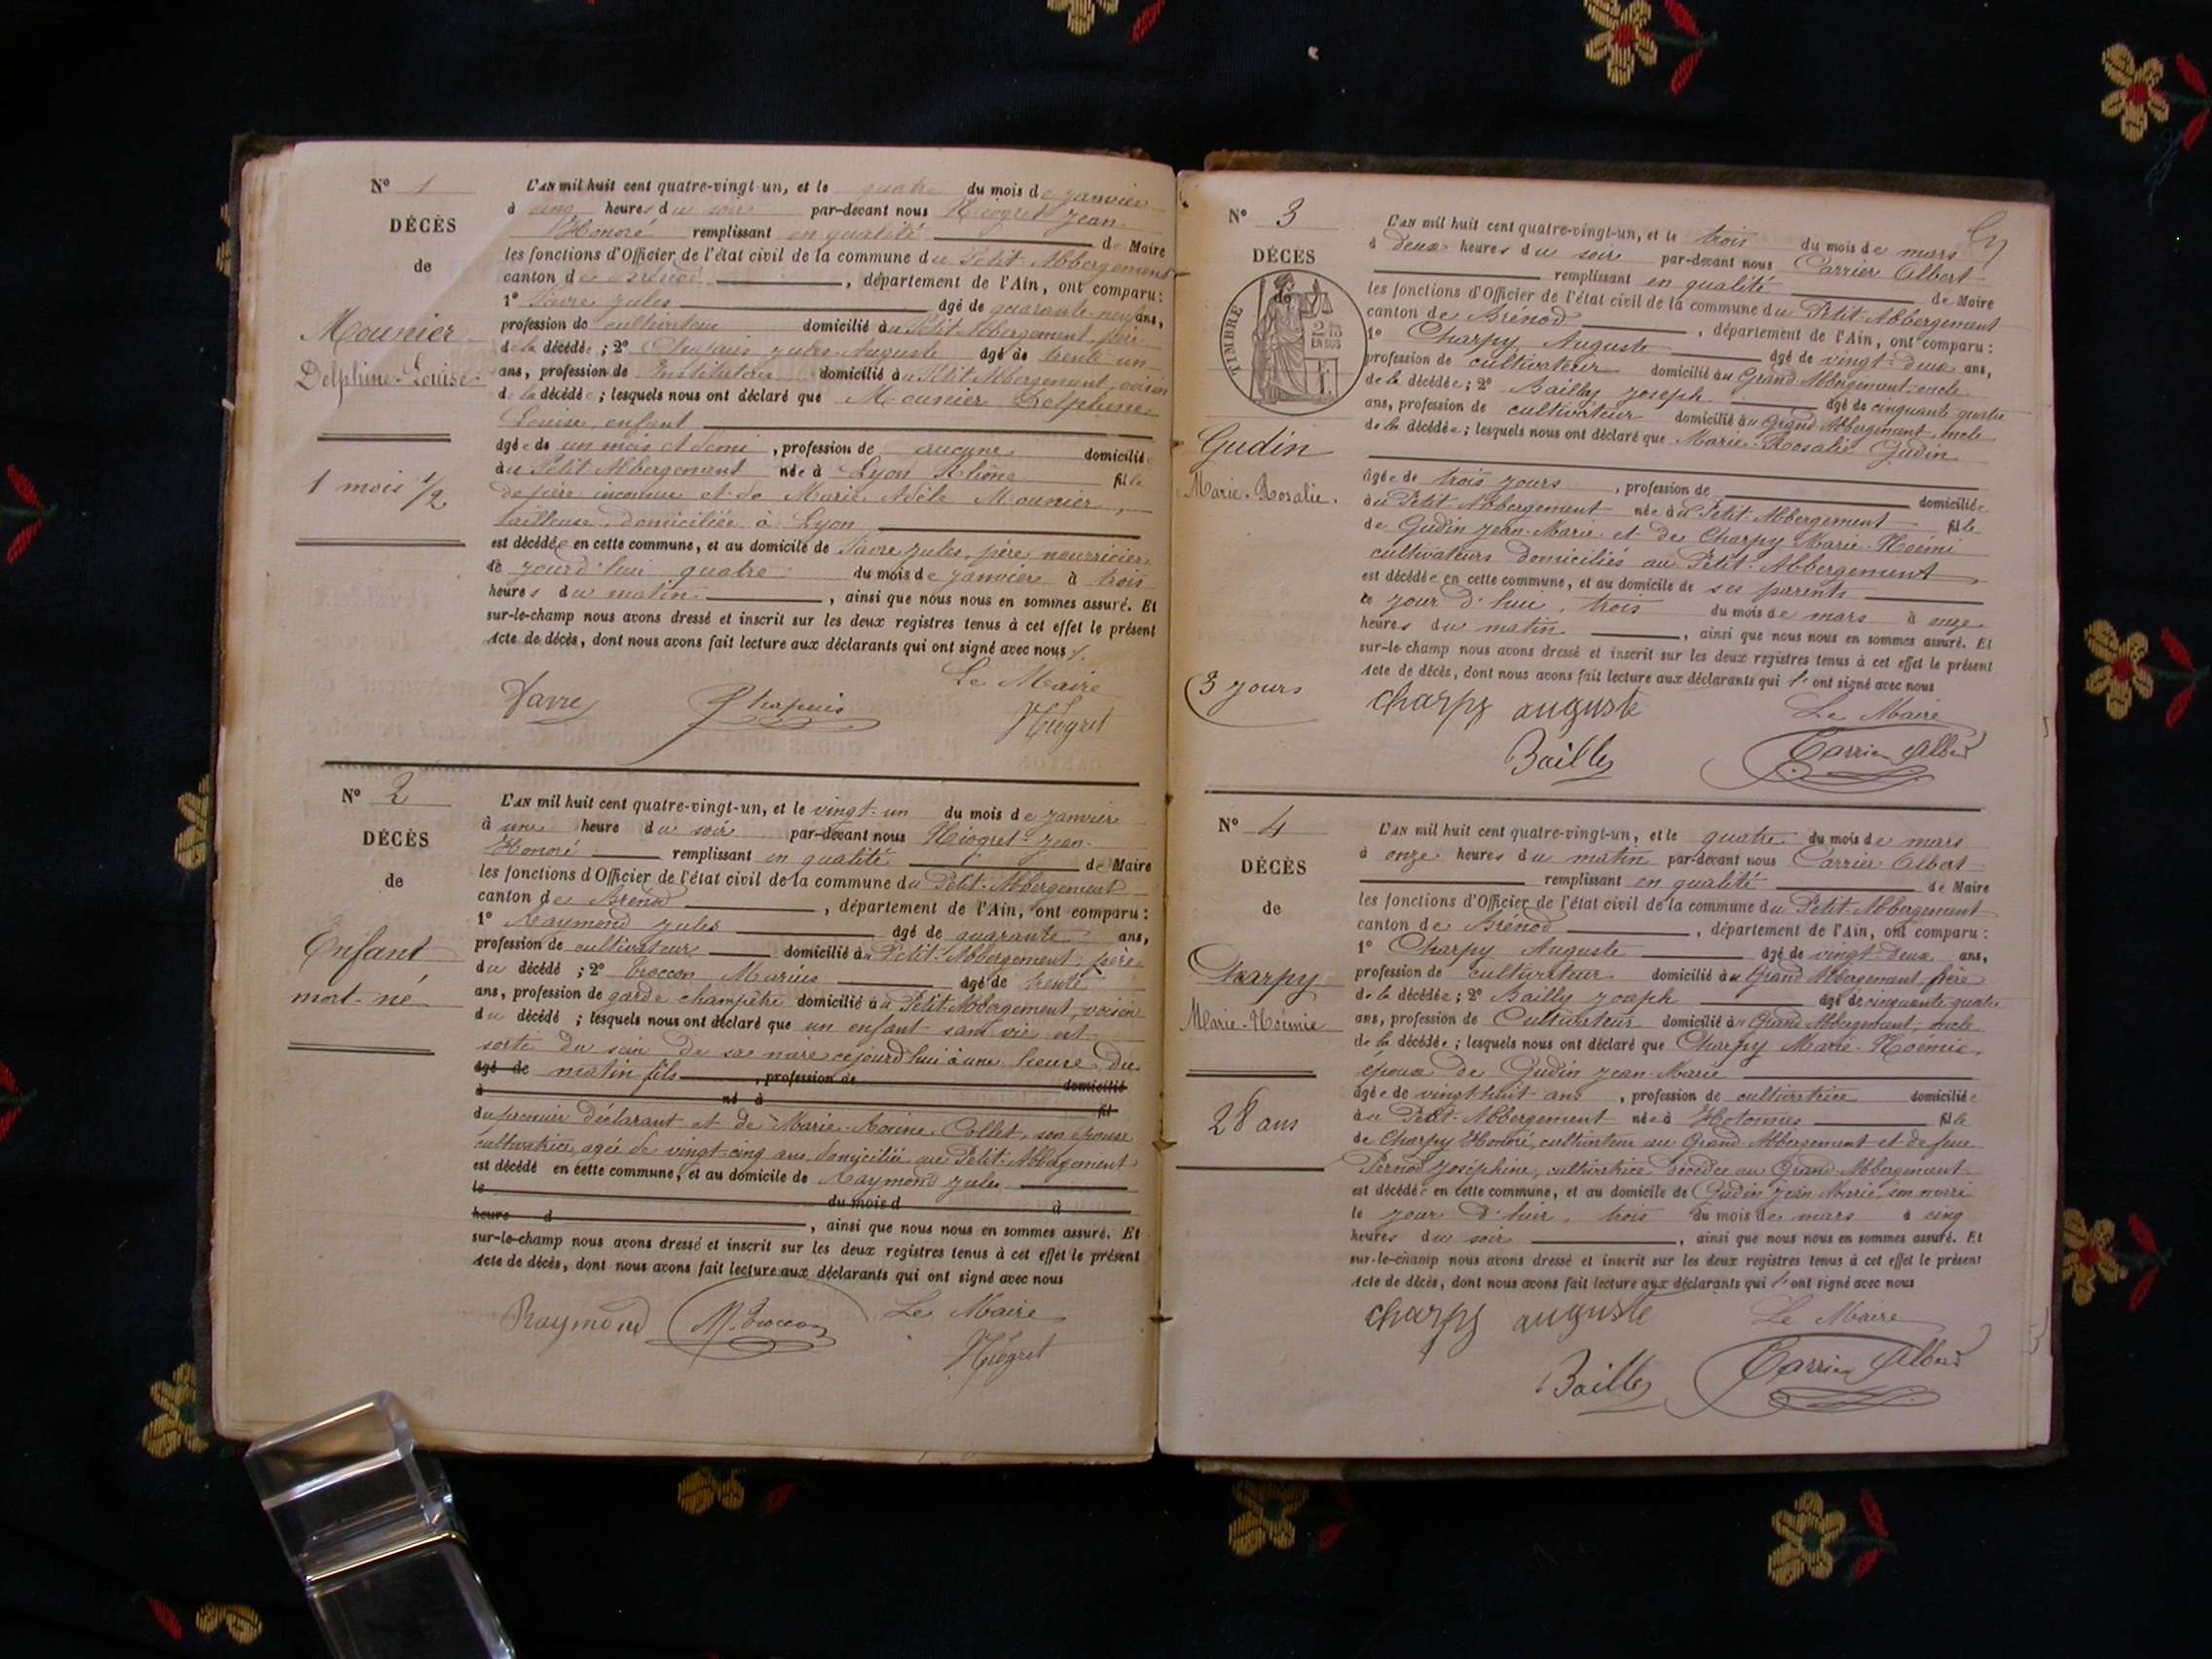 N° 1
DÉCÈS
de
Mounier
Delphine-Louise
1 mois 1/2
L'AN mil huit cent quatre-vingt-un, et le quatre du mois de janvier
à cinq heures du soir par-devant nous Hiogret Jean
Honoré remplissant en qualité de Maire
les fonctions d'Officier de l'état civil de la commune du Petit-Abbergement
canton de Brénod, département de l'Ain, ont comparu :
1° Favre Jules âgé de quarante-neuf ans,
profession de cultivateur domicilié au Petit Abbergement, père
de la décédée ; 2° Chapuis Jules-Auguste âgé de trente-un
ans, profession de Instituteur domicilié au Petit Abbergement, voisin
de la décédée ; lesquels nous ont déclaré que Mounier Delphine
Louise, enfant
âgée de un mois et demi, profession de aucune domiciliée
au Petit-Abbergement née à Lyon Rhône fille
de père inconnu et de Marie Adèle Mounier,
tailleuse, domiciliée à Lyon
est décédée en cette commune, et au domicile de Favre Jules, père nourricier
ce jourd'hui quatre du mois de janvier à trois
heures du matin, ainsi que nous nous en sommes assuré. Et
sur-le-champ nous avons dressé et inscrit sur les deux registres tenus à cet effet le présent
Acte de décès, dont nous avons fait lecture aux déclarants qui ont signé avec nous
Le Maire
Favre Chapuis Hiogret
N° 2
DÉCÈS
de
Enfant
mort-né
L'AN mil huit cent quatre-vingt-un, et le vingt-un du mois de janvier
à une heure du soir par-devant nous Hiogret Jean
Honoré remplissant en qualité de Maire
les fonctions d'Officier de l'état civil de la commune du Petit-Abbergement
canton de Brénod, département de l'Ain, ont comparu :
1° Raymond Jules âgé de quarante ans,
profession de cultivateur domicilié au Petit-Abbergement, père
du décédé ; 2° Troccon Marius âgé de trente
ans, profession de garde champêtre domicilié au Petit Abbergement, voisin
du décédé ; lesquels nous ont déclaré que un enfant sans vie est
sorti du sein de sa mère cejourd'hui à une heure du
âgé de matin fils, profession de domicilié
à né à fil
du premier déclarant et de Marie Collet, son épouse
cultivatrice, agée de vingt-cinq ans, domiciliée au Petit-Abbergement
est décédé en cette commune, et au domicile de Raymond Jules
le du mois d à
heure d, ainsi que nous nous en sommes assuré. Et
sur-le-champ nous avons dressé et inscrit sur les deux registres tenus à cet effet le présent
Acte de décès, dont nous avons fait lecture aux déclarants qui ont signé avec nous
Raymond M. Troccon Le Maire
Hiogret
N° 3
DÉCÈS
de
TIMBRE
2/10
EN SUS
Gudin
Marie-Rosalie.
3 jours
L'AN mil huit cent quatre-vingt-un, et le trois du mois de mars
à deux heures du soir par-devant nous Carrier Albert
remplissant en qualité de Maire
les fonctions d'Officier de l'état civil de la commune du Petit-Abbergement
canton de Brénod, département de l'Ain, ont comparu :
1° Charpy Auguste âgé de vingt-deux ans,
profession de cultivateur domicilié au Grand-Abbergement, oncle
de la décédée ; 2° Bailly Joseph âgé de cinquante-quatre
ans, profession de cultivateur domicilié au Grand Abbergement, oncle
de la décédée ; lesquels nous ont déclaré que Marie-Rosalie Gudin
âgée de trois jours, profession de domiciliée
au Petit-Abbergement née au Petit-Abbergement fille
de Gudin Jean-Marie et de Charpy Marie-Noémi
cultivateurs domiciliés au Petit-Abbergement
est décédée en cette commune, et au domicile de ses parents
ce jour d'hui, trois du mois de mars à onze
heures du matin, ainsi que nous nous en sommes assuré. Et
sur-le-champ nous avons dressé et inscrit sur les deux registres tenus à cet effet le présent
Acte de décès, dont nous avons fait lecture aux déclarants qui l'ont signé avec nous
charpy auguste Le Maire
Bailly Carrier Albert
N° 4
DÉCÈS
de
Charpy
Marie-Noémie
28 ans
L'AN mil huit cent quatre-vingt-un, et le quatre du mois de mars
à onze heures du matin par-devant nous Carrier Albert
remplissant en qualité de Maire
les fonctions d'Officier de l'état civil de la commune du Petit-Abbergement
canton de Brénod, département de l'Ain, ont comparu :
1° Charpy Auguste âgé de vingt-deux ans,
profession de cultivateur domicilié au Grand Abbergement, frère
de la décédée ; 2° Bailly Joseph âgé de cinquante-quatre
ans, profession de Cultivateur domicilié au Grand Abbergement, oncle
de la décédée ; lesquels nous ont déclaré que Charpy Marie-Noémie,
épouse de Gudin Jean-Marie
âgée de vingt-huit ans, profession de cultivatrice domiciliée
au Petit-Abbergement née à Hotonnes fille
de Charpy Honoré, cultivateur au Grand-Abbergement et de feue
Pernod Joséphine, cultivatrice décédée au Grand-Abbergement
est décédée en cette commune, et au domicile de Gudin Jean-Marie, son mari
le jour d'hier, trois du mois de mars à cinq
heures du soir, ainsi que nous nous en sommes assuré. Et
sur-le-champ nous avons dressé et inscrit sur les deux registres tenus à cet effet le présent
Acte de décès, dont nous avons fait lecture aux déclarants qui l'ont signé avec nous
charpy auguste Le Maire
Bailly Carrier Albert